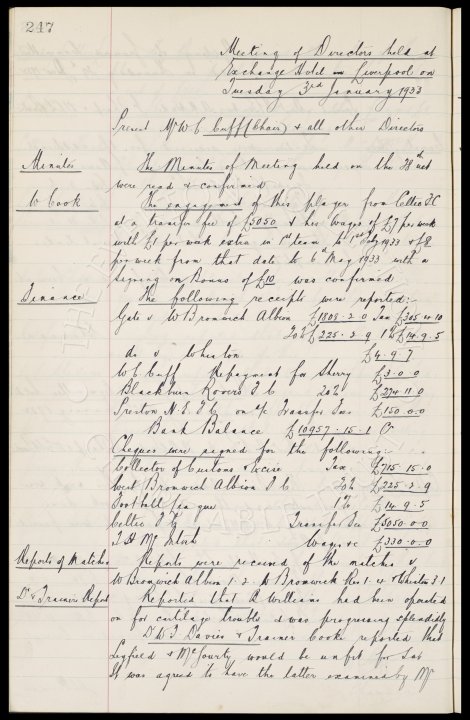 247
Meeting of Directors held at
Exchange Hotel Liverpool on
Tuesday 3rd January 1933
Present Mr W C Cuff (Chair) & all other Directors
Minutes The Minutes of Meeting held on the 28th ult
were read & confirmed
W Cook The engagement of this player from Celtic F C
at a transfer fee of £5050 & his wages of £7 per week
with £1 per week extra in 1st team to 1st July 1933 & £8
per week from that date to 6th May 1933 with a
signing on Bonus of £10 was confirmed
Finance The following receipts were reported:-
Gate v W Bromwich Albion £1808.2.0 Tax £305.4.10
20% £225.2.9 1% £14.9.5
do v Chester £4.9.7
W C Cuff Repayment for Sherry £3.0.0
Blackburn Rovers F C 20% £274.11.0
Preston N.E. F C on a/c Transfer Fee £150.0.0
Bank Balance £10957.15.1 Cr
Cheques were signed for the following:-
Collector of Customs & Excise Tax £715.15.0
West Bromwich Albion F C 20% £225.2.9
Football League 1% £14.9.5
Celtic F C Transfer Fee £5050.0.0
T H McIntosh Wages &c £330.0.0
Reports of Matches Reports were received of the matches v
W Bromwich Albion 1.2. W Bromwich Res 1.4 & Chester 3.1
Dr & Trainers Report Reported that A Williams had been operated
on for cartilage trouble & was progressing splendidly
Dr D T Davies & Trainer Cooke reported that
Leyfield & McGourty would be unfit for Sat
It was agreed to have the latter examined by Mr